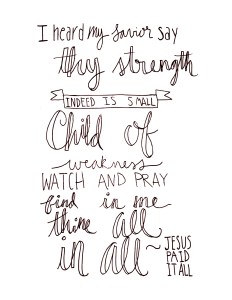 I heard my Savior say
thy strength
INDEED IS SMALL
Child of
weakness
WATCH AND PRAY
find in me
thine all
in all ~ JESUS
PAID
IT ALL